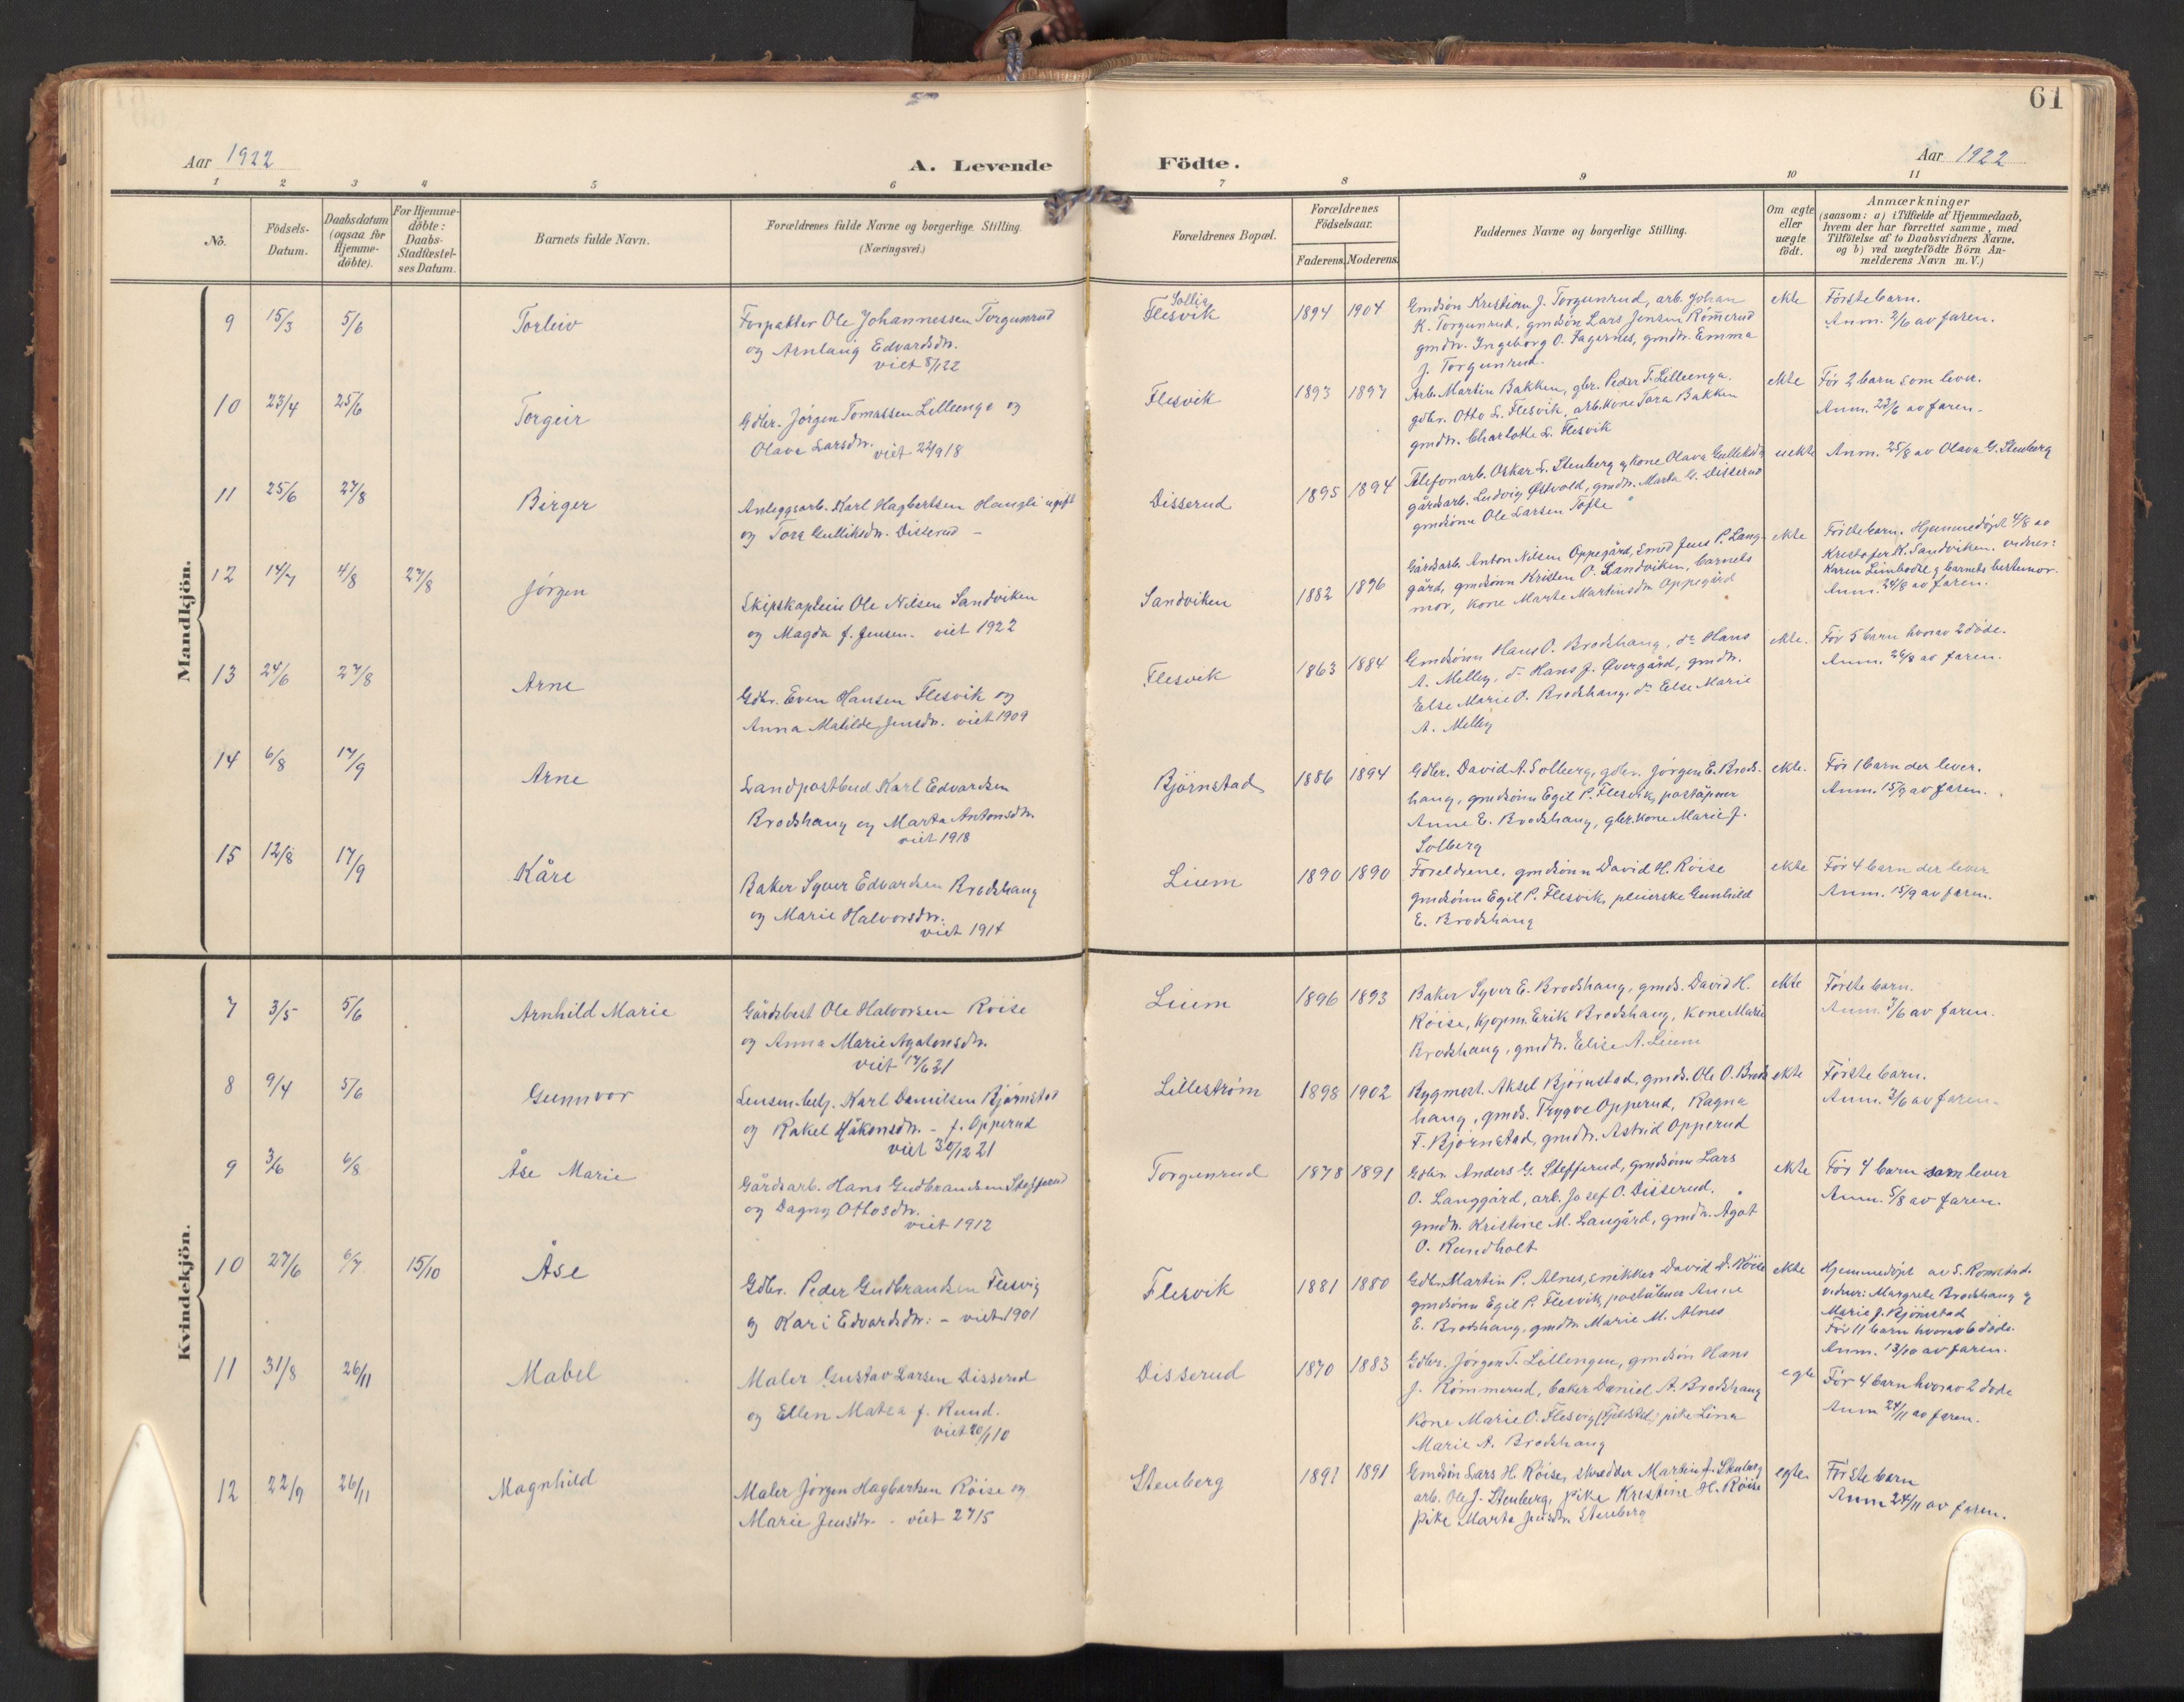 61
Aar 1922
A. Levende Födte.
Aar 1922
1 2 3 4 5 6 7 8 9 10 11
No.
Födsels-
Datum.
Daabsdatum
(ogsaa for
Hjemme-
döbte).
For Hjemme-
döbte:
Daabs-
Stadfæstel-
ses Datum.
Barnets fulde Navn.
Forældrenes fulde Navne og borgerlige Stilling.
(Næringsvei.)
Forældrenes Bopæl.
Forældrenes
Födselsaar.
Faderens. Moderens.
Faddernes Navne og borgerlige Stilling.
Om ægte
eller
uægte
födt.
Anmærkninger
(saasom: a) i Tilfælde af Hjemmedaab,
hvem der har forrettet samme, med
Tilföielse af to Daabsvidners Navne,
og b) ved uægtefödte Börn An-
melderens Navn m. V.)
Mandkjön.
9 15/3 5/6 Torleiv
Forpakter Ole Johannessen Torgunrud
og Arnlaug Edvardsdtr.
viet 8/1 22
Sollia
Flesvik
1894 1904
Gmdsön Kristian J. Torgunrud, arb. Johan
K. Torgunrud, gmdsön Lars Jensen Römerud
gmdtr. Ingeborg O. Fagernes, gmdtr. Emma
J. Torgunrud.
ekte
Förste barn.
Anm. 2/6 av faren.
10 23/4 25/6 Torgeir
Gdbr. Jörgen Tomassen Lilleenga og
Olava Larsdtr. viet 22/9 18
Flesvik
1893 1897
Arb. Martin Bakken, gbr. Peder T. Lilleenga,
gdbr. Otto L. Flesvik, arb.kone Tora Bakken
gmdtr. Charlotte L. Flesvik
ekte
För 2 barn som lever.
Anm. 23/6 av faren.
11 25/6 27/8 Birger
Anleggsarb. Karl Hagbertsen Haugli ugift
og Tora Gulliksdtr. Disserud -
Disserud
1895 1894
Telefonarb. Oskar L. Stenberg og kone Olava Gulliksdtr
gårdsarb. Ludvig Østvold, gmdtr. Marta G. Disserud
gmdsönn Ole Larsen Tofte
uekte
Anm. 25/8 av Olava G. Stenberg
12 14/7 4/8 27/8 Jörgen
Skipskaptein Ole Nilsen Sandviken
og Magda f. Jensen. viet 1922
Sandviken
1882 1896
Gårdsarb. Anton Nilsen Oppegård, smed Jens P. Lang-
gård, gmdsönn Kristen O. Sandviken, barnets
mor, kone Marte Martinsdtr Oppegård
ekte
Förste barn. Hjemmedöpt 4/8 av
Kristofer K. Sandviken. vidner:
Karen Limbodal og barnets bestemor.
Anm. 24/8 av faren.
13 24/6 27/8 Arne
Gdbr. Even Hansen Flesvik og
Anna Matilde Jensdtr. viet 1909
Flesvik
1863 1884
Gmdsönn Hans O. Brodshaug, do Hans
A. Melby, do Hans J. Øvergård, gmdtr.
Else Marie O. Brodshaug, do Else Marie
A. Melby
ekte.
För 5 barn hvorav 2 döde.
Anm. 26/8 av faren.
14 6/8 17/9 Arne
Landpostbud Karl Edvardsen
Brodshaug og Marta Antonsdtr.
viet 1918
Björnstad
1886 1894
Gdbr. David A. Solberg, gdbr. Jörgen E. Brods-
haug, gmdsönn Egil P. Flesvik, poståpner
Anne E. Brodshaug, gbr.kone Marie J.
Solberg
ekte.
För 1 barn der lever.
Anm. 15/9 av faren.
15 12/8 17/9 Kåre
Baker Syver Edvardsen Brodshaug
og Marie Halvorsdtr.
viet 1914
Liem
1890 1890
Foreldrene, gmdsönn David H. Röise
gmdsönn Egil P. Flesvik, pleierske Gunhild
E. Brodshaug
ekte
För 4 barn der lever
Anm. 15/9 av faren.
Kvindekjön.
7 3/5 5/6 Arnhild Marie
Gårdsbest Ole Halvorsen Röise
og Anna Marie Agatonsdtr.
viet 17/6 21
Liem
1896 1893
Baker Syver E. Brodshaug, gmds. David H.
Röise, kjøpm. Erik Brodshaug, kone Marie
Brodshaug, gmdtr. Elise A. Liem
ekte
Förste barn.
Anm. 3/6 av faren.
8 9/4 5/6 Gunnvor
Lensm.betj. Karl Danielsen Björnstad
og Rakel Håkonsdtr. - f. Opperud
viet 30/12 21
Lilleström
1898 1902
Bygmest. Aksel Björnstad, gmds. Ole O. Brods-
haug, gmds. Trygve Opperud, Ragna
F. Björnstad, gmdtr. Astrid Opperud
ekte
Förste barn.
Anm. 3/6 av faren.
9 3/6 6/8 Åse Marie
Gårdsarb. Hans Gudbrandsen Stefferud
og Dagny Ottosdtr.
viet 1912
Torgunrud
1878 1891
Gdbr. Anders G. Stefferud, gmdsönn Lars
O. Langgård, arb. Josef O. Disserud,
gmdtr. Kristine M. Laugård, gmdtr. Agot
O. Rundholt
ekte
För 4 barn som lever
Anm. 5/8 av faren.
10 27/6 6/7 15/10 Åse
Gdbr. Peder Gudbrandsen Flesvig
og Kari Edvardsdtr: - viet 1901
Flesvik
1881 1880
Gdbr. Martin P. Alnes, snikker David D. Röise
gmdsönn Egil P. Flesvik, poståbner Anne
E. Brodshaug, gmdtr Marie M. Alnes
ekte
Hjemmedöpt av S. Romstad.
vidner: Margrete Brodshaug og
Marie J. Björnstad
För 11 barn hvorav 6 döde.
Anm. 13/10 av faren.
11 31/8 26/11 Mabel
Maler Gustav Larsen Disserud
og Ellen Matea f. Rund.
viet 20/1 10
Disserud
1870 1883
Gdbr. Jörgen T. Lillengen, gmdsön Hans
J. Römmerud, baker Daniel A. Brodshaug
Kone Marie O. Flesvig (Fjeldstad) pike Lina
Marie A. Brodshaug
egte
För 4 barn hvorav 2 döde
Anm 24/11 av faren.
12 22/9 26/11 Magnhild
Maler Jörgen Hagbartsen Röise og
Marie Jensdtr. - viet 27/5
Stenberg
1891 1891
Gmdsön Lars H. Röise, skredder Martin J. Stenberg
arb. Ole J. Stenberg, pike Kristine H. Röise
pike Marta Jensdtr Stenberg
egte.
Förste barn
Anm 24/11 av faren.